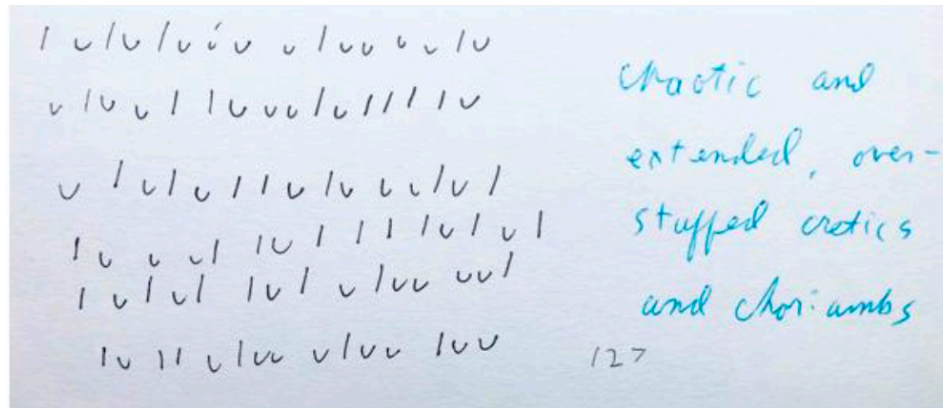 chaotic and
extended, over-
stuffed cretics
and choriambs
127